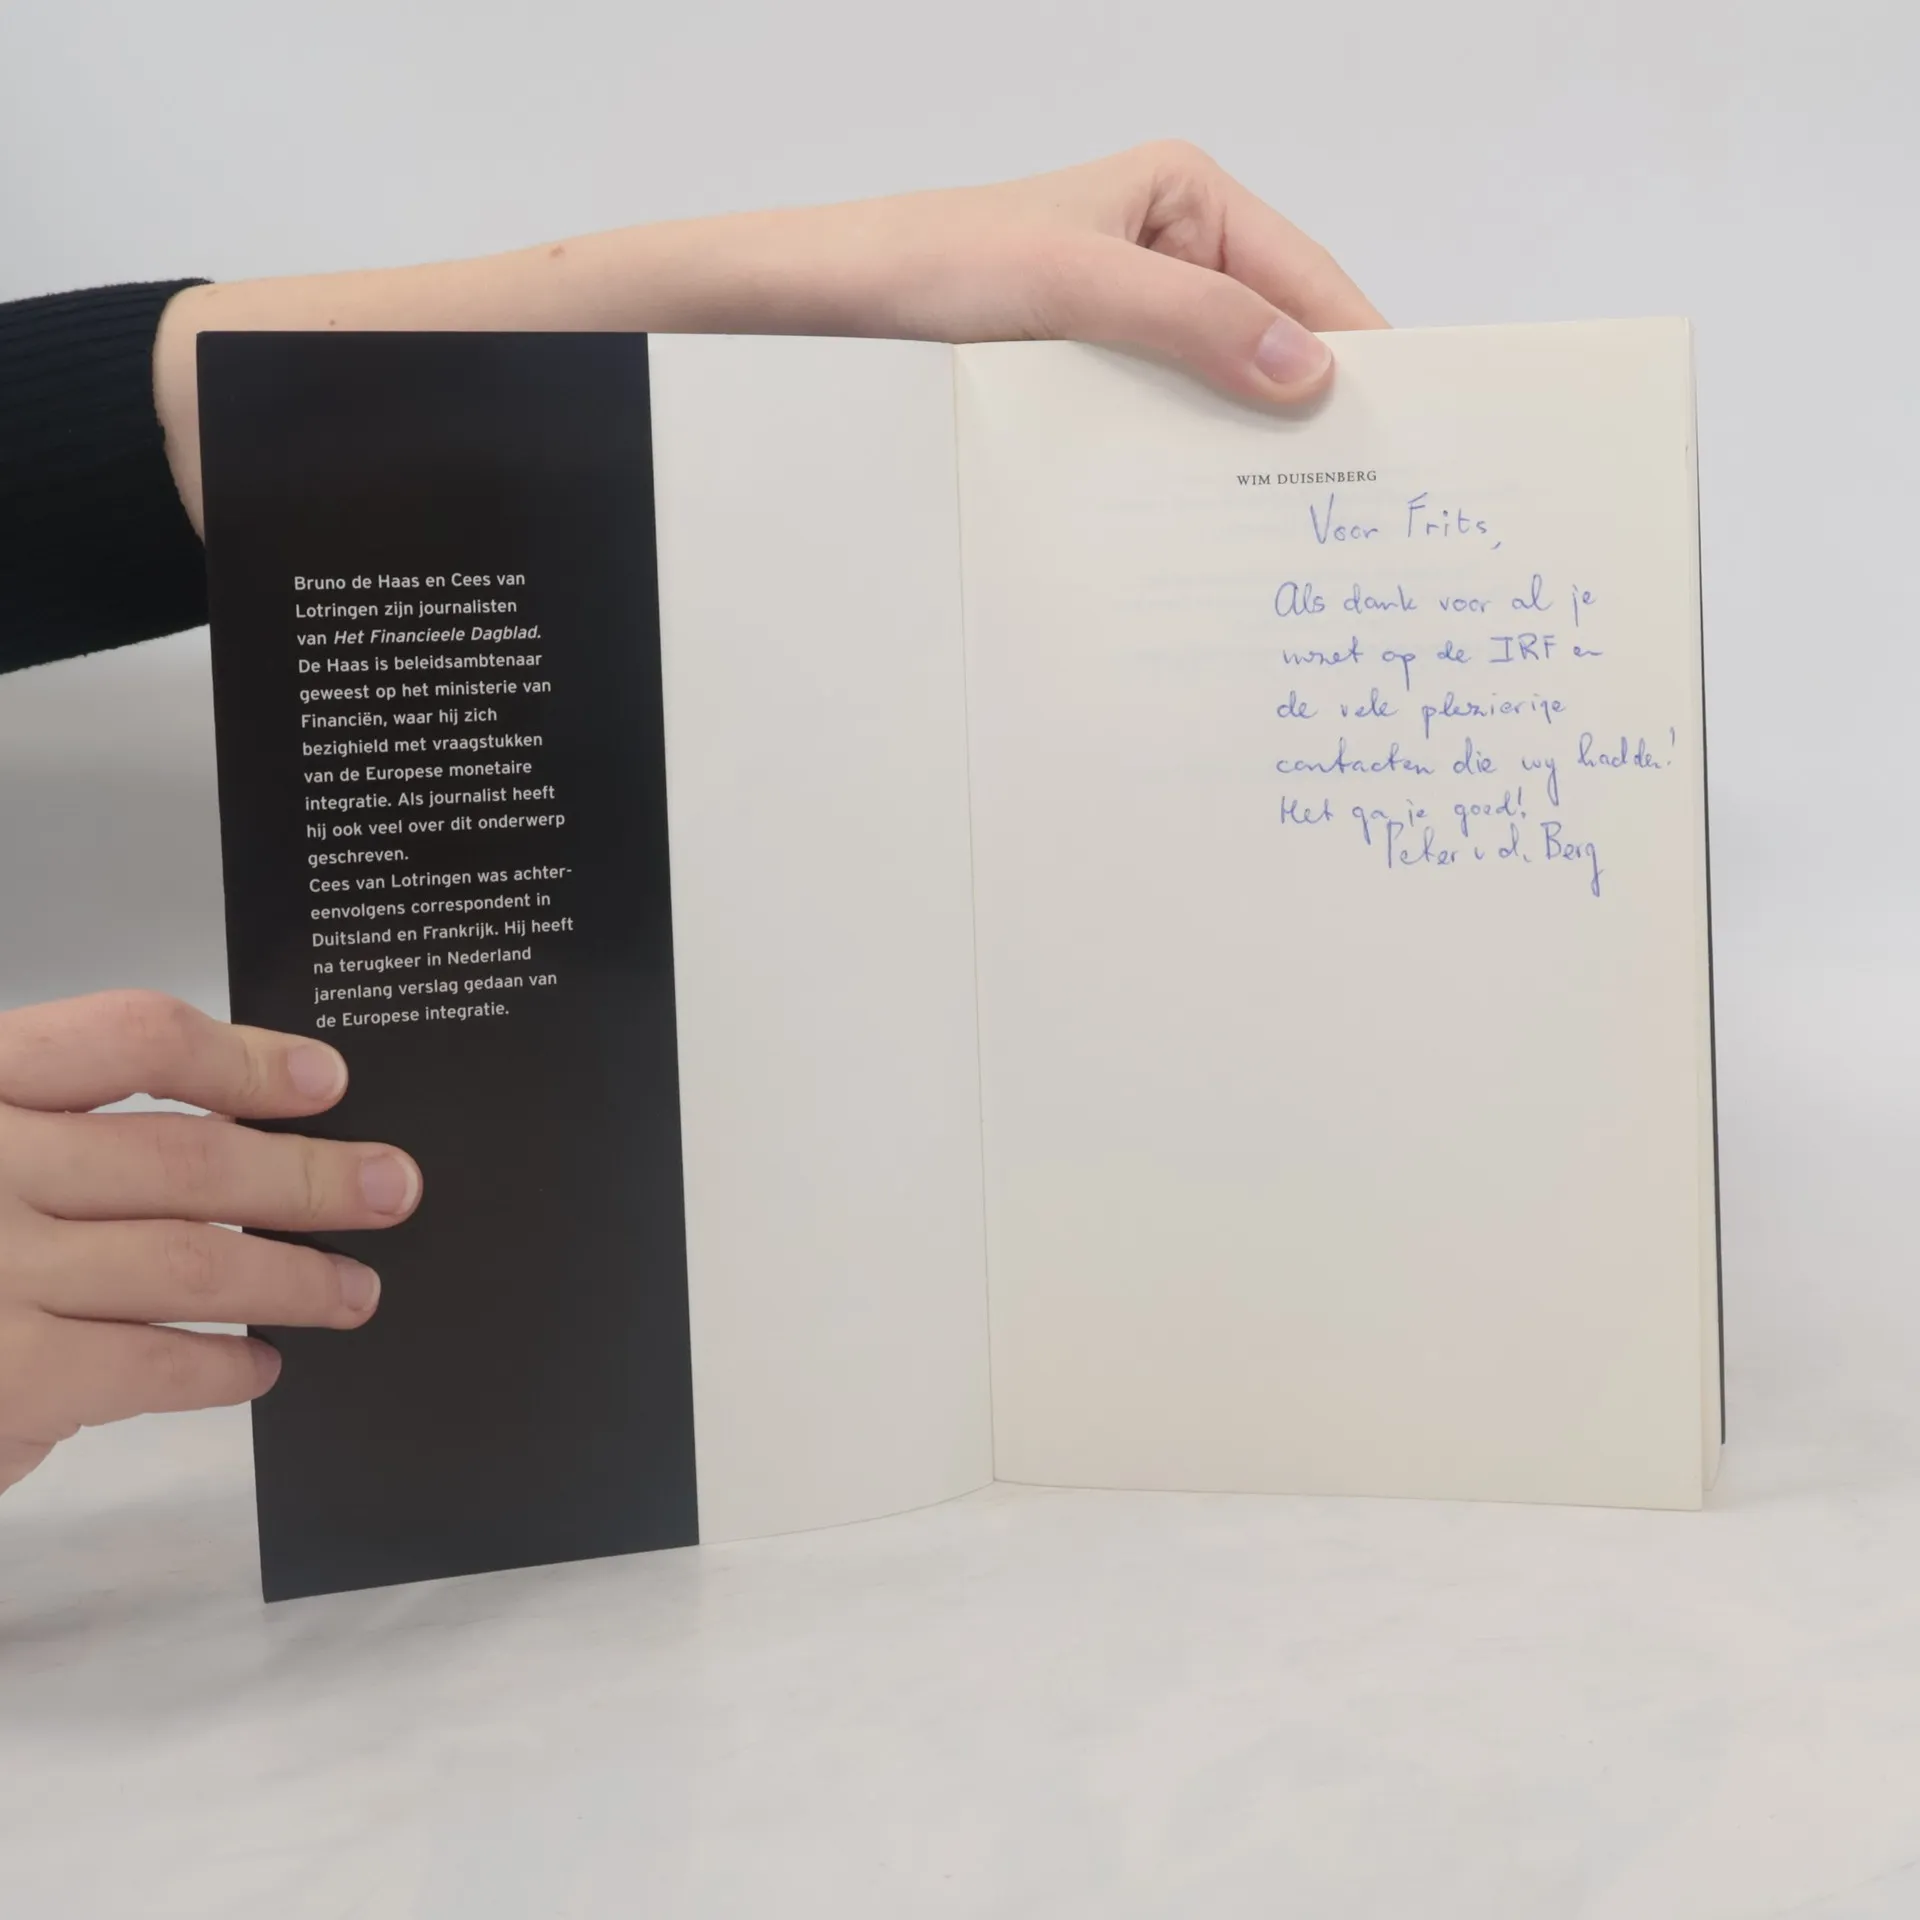 Bruno de Haas en Cees van
Lotringen zijn journalisten
van Het Financieele Dagblad.
De Haas is beleidsambtenaar
geweest op het ministerie van
Financiën, waar hij zich
bezighield met vraagstukken
van de Europese monetaire
integratie. Als journalist heeft
hij ook veel over dit onderwerp
geschreven.
Cees van Lotringen was achter-
eenvolgens correspondent in
Duitsland en Frankrijk. Hij heeft
na terugkeer in Nederland
jarenlang verslag gedaan van
de Europese integratie.
WIM DUISENBERG
Voor Frits,
Als dank voor al je
inzet op de IRF en
de vele plezierige
contacten die wij hadden!
Het ga je goed!
Peter v d. Berg